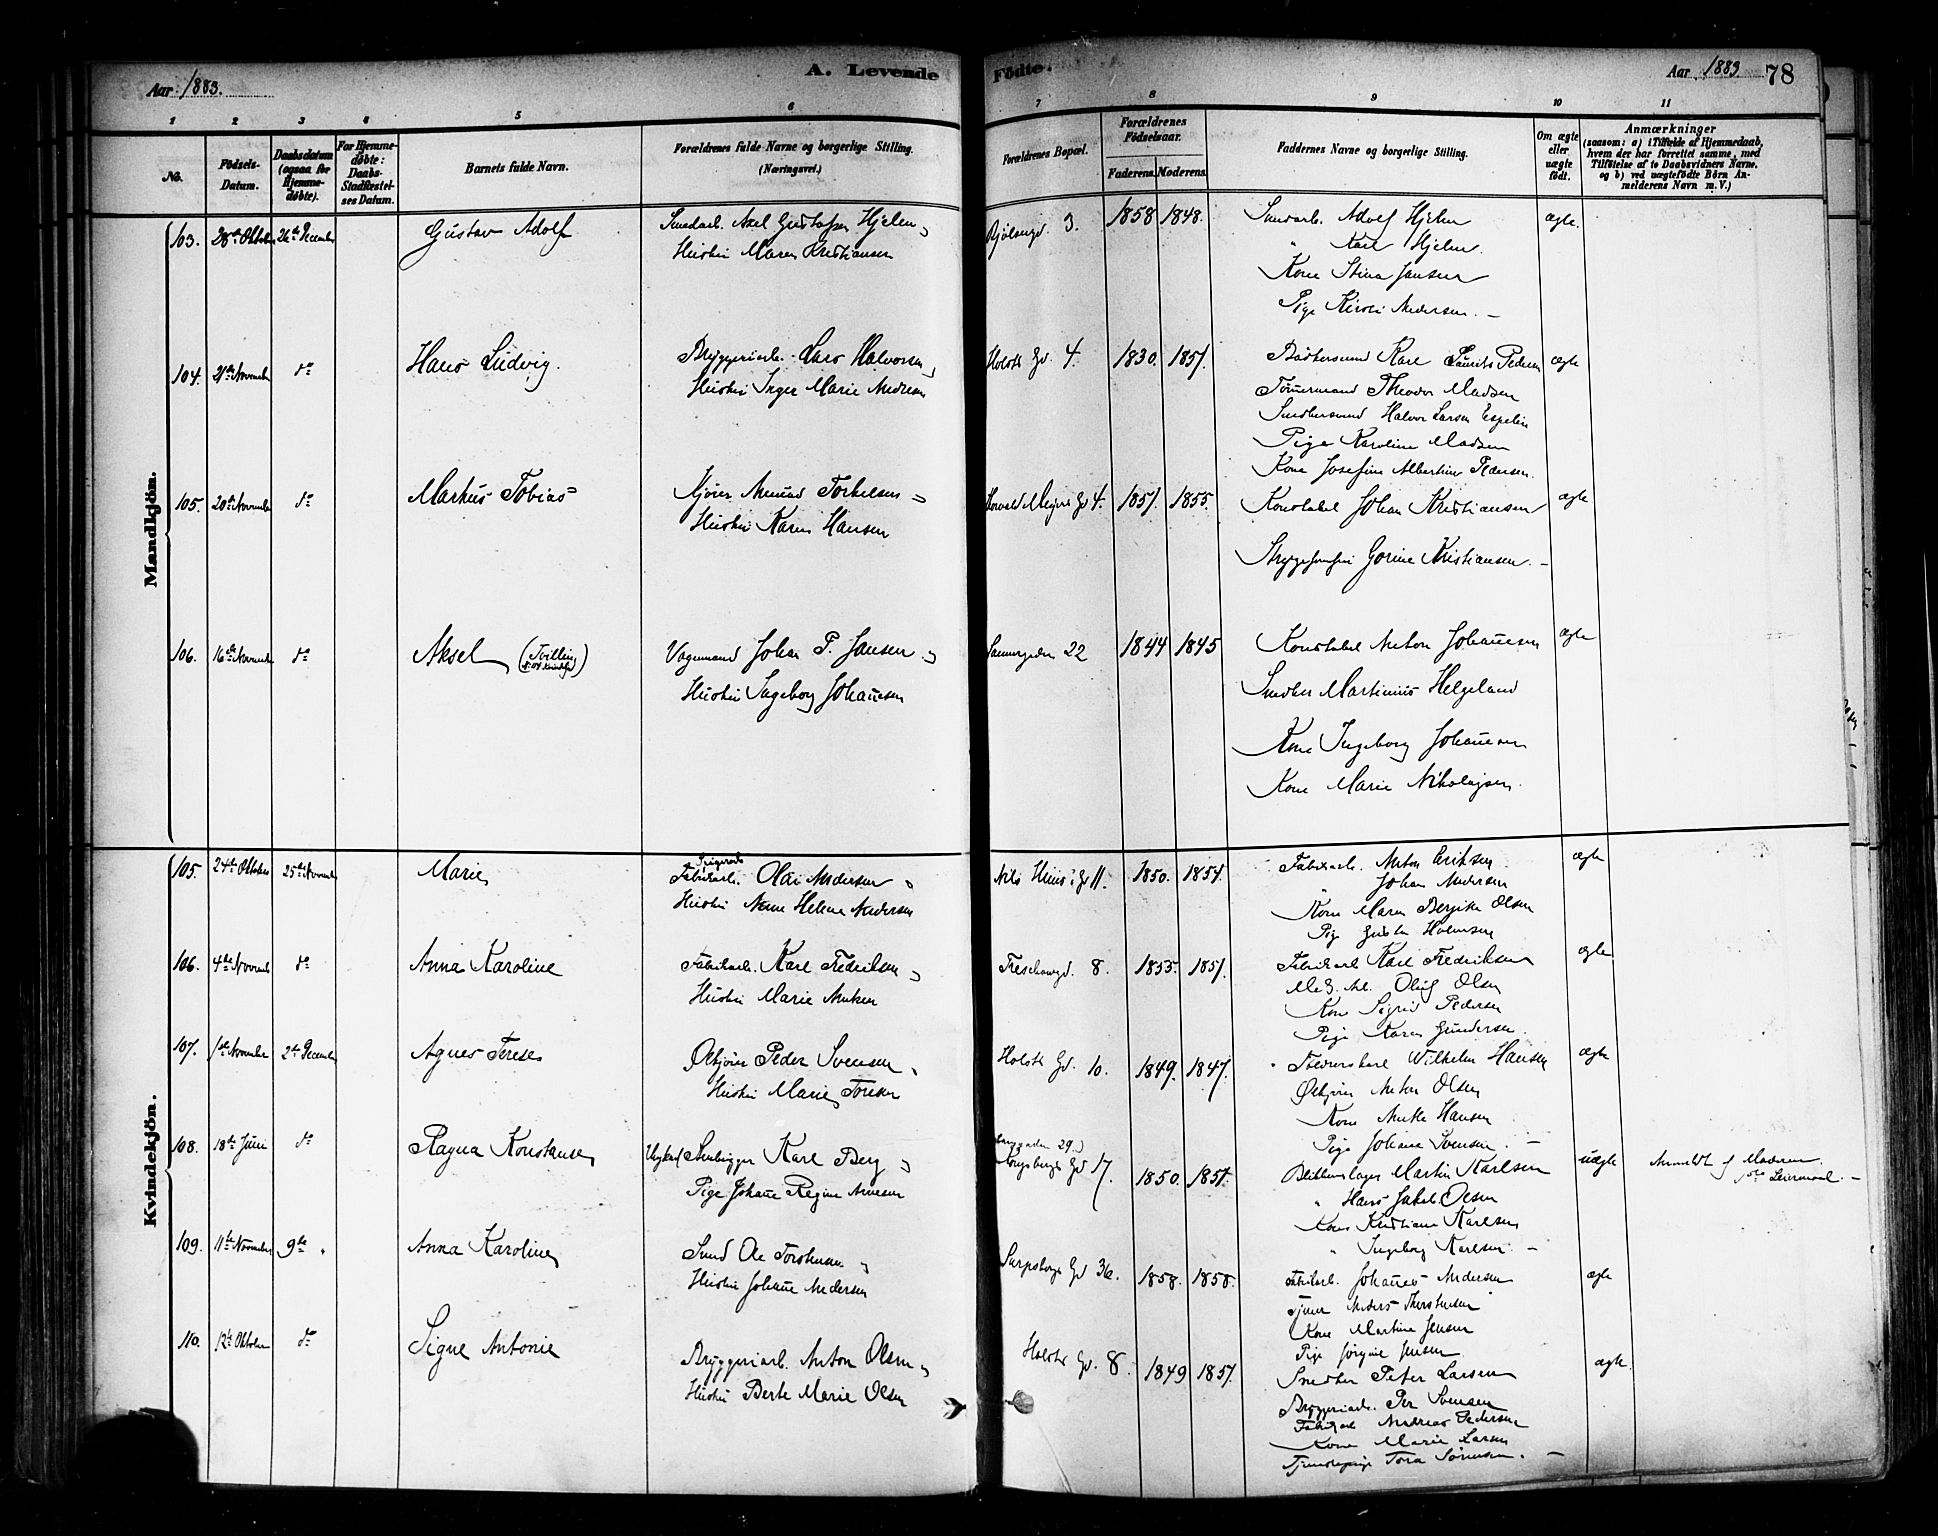 Aar 1883.
A. Levende
Födte.
Aar 1883
78
1 2 3 4 5 6 7 8 9 10 11
No.
Födsels-Datum.
Daabsdatum (ogsaa for Hjemmedøbte).
For Hjemmedøbte: Daabs-Stadfæstelses Datum.
Barnets fulde Navn.
Forældrenes fulde Navne og borgerlige Stilling.
(Næringsvei.)
Forældrenes Bopæl.
Forældrenes Födselsaar.
Faderens. Moderens.
Faddernes Navne og borgerlige Stilling.
Om ægte eller uægte födt.
Anmærkninger
(saasom: a) i Tilfælde af Hjemmedaab,
hvem der har forrettet samme, med
Tilføielse af to Daabsvidners Navne.
og b) ved uægtefødte Børn An-
melderens Navn m.V.)
Mandkjön.
103. 28de Oktober 26de December Gustav Adolf
Axel Gustafsen Hjelm
Hustru Maren Kristiansen
3. 1858 1848.
Adolf Hjelm
" Karl Hjelm
Kone Stina Jansen
Pige Andersen.
ægte.
104. 21de November do Hans Ludvig.
Bryggeriarb. Lars Halvorsen
Hustru Inger Marie Andersen
Holsts Gd. 4. 1830. 1851.
Karl Laurits Pedersen
Tømmermand Theodor Madsen
Halvor Larsen Espelin
Pige Karoline Madsen
Kone Josefine Albertine Pedersen.
ægte
105. 20de November do Markus Tobias
Kjører Amund Torkelsen
Hustru Karen Hansen
Meyers Gd 4. 1851. 1855.
Konstabel Johan Kristiansen
Gorine Kristiansen.
ægte
106. 16de November do Aksel (Tvilling)
Vognmand Johan P. Jansen
Hustru Ingeborg Johansen
22 1844 1845
Konstabel Anton Johansen
Snedker Martinius Helgeland
Kone Ingeborg Johansen
Kone Marie Nikolajsen.
ægte
Kvindekjön.
105. 24de Oktober 25de November Marie
Fabrikarb. Andersen
Hustru Anne Helene Andersen
Nils Gd 11. 1850. 1854.
Fabrikarb. Anton Eriksen
" Johan Andersen
Kone Maren Olsen
Pige Holmsen
ægte
106. 4de November do Anna Karoline
Fabrikarb. Karl Fredriksen
Hustru Marie
Treschowgd. 8. 1855. 1851.
Fabrikarb. Karl Fredriksen
Oluf Olsen
Kone Sigrid Pedersen
Pige Karen Gundersen.
ægte
107. 1ste November 2de December Agnes Terese
Peder Svensen
Hustru Marie
Holsts Gd. 10. 1849. 1847.
Wilhelm Hansen
Anton Olsen
Kone Hansen
Pige Johane Svensen.
ægte
108. 18de Juni do Ragna Konstanse
Ungkarl Stenhugger Karl Berg
Pige Johane Regine Arnesen
29.
Kongsbergs Gd 17. 1850. 1851.
Blikkenslager Martin Karlsen
" Hans Jakob Olsen
Kone Kristiane Karlsen
" Ingeborg Karlsen.
uægte
Anmeldt af Moderen
109. 11te November 9de " Anna Karoline
Smed Ole Torstensen
Hustru Johane Andersen
Sarpsborgs Gd 36. 1858. 1858.
Fabrikarb. Johannes Andersen
Anders Thorstensen
Kone Martine Jensen
Pige Jørgine Jensen
ægte
110. 12te Oktober do Signe Antonie
Bryggeriarb. Anton Olsen
Hustru Berte Marie Olsen
Holsts Gd. 8. 1849 1851.
Snedker Peter Larsen
Bryggeriarb. Per Svensen
Fabrikarb. Andreas Pedersen
Kone Marie Larsen
Tjenestepige Tora Sørensen.
ægte.